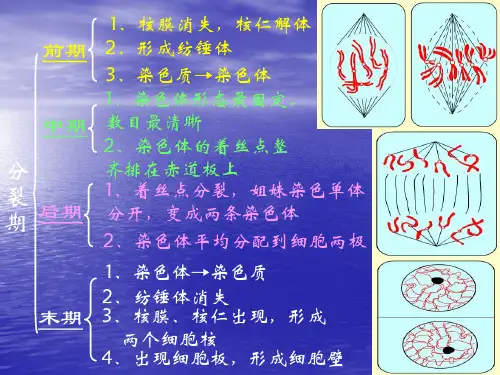 分裂期
前期
1、核膜消失，核仁解体
2、形成纺锤体
3、染色质→染色体
中期
1、染色体形态最固定，
数目最清晰
2、染色体的着丝点整
齐排在赤道板上
后期
1、着丝点分裂，姐妹染色单体
分开，变成两条染色体
2、染色体平均分配到细胞两极
末期
1、染色体→染色质
2、纺锤体消失
3、核膜、核仁出现，形成
两个细胞核
4、出现细胞板，形成细胞壁